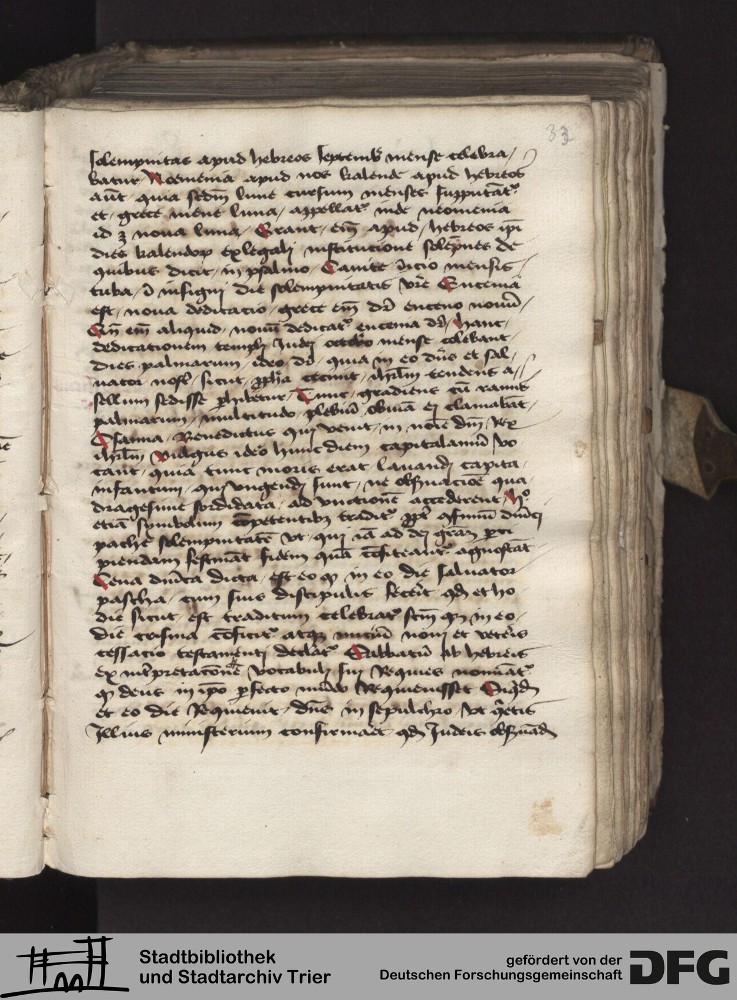 33
solempnitas apud hebreos septembr mense celebra/
batur Neomenia apud nos kalende apud hebreos
aūt quia scdm lune cursum menses suppūtāt
et grece mene luna / appellat inde neomenia
id ꝫ noua luna Erant em̄ apud hebreos ip̄i
dies kalendoꝝ ex legali institutione solēpnes de
quibus dicit in psalmo Canite īicio mensis
tuba / ī insigni die solempnitatis vr̄e Encenia
est noua dedicatio grece em̄ dr̄ enceno nouū
Qn̄ em̄ aliquid nouū dedicat encenia dr̄ hanc
dedicationem templi Iudei octobr mense celebant
dies palmarum ideo dr̄ quia in eo dn̄s et sal
uator nost sicut ꝓph̄a cecinit ih̄rlm̄ tendens a
sellum sedisse ꝑhibetur Tunc gradiens cū ramis
palmarum multitudo plebiū obuiā ei clamabāt
Osanna Benedictus qui venit in noīe dn̄i Rex
isrl̄m vulgus ideo hunc diem capitalauiū vo
cant quia tunc moris erat lauandi capita
infantum qui vngendi sunt ne obſuatiōe qua
dragesime sordidata ad vnctionē accederent Ho
etiā symbolum cōpetentibꝫ tradit ꝓpt ꝯfinīū dn̄ici
pasche solempnitatē vt qui iā ad dei grām ꝑci
piendam festināt fidem quā cōfiteant agnoscāt
Cena dn̄ica dicta est eo ꝙ in eo die saluator
pascha cum suis discipulis fecerit qd̄ et ho
die sicut est traditum celebrat scm̄ ꝙ in eo
die crisma cōficit atqꝫ initiū noui et veteris
cessatio testamenti declat Sabbatū ab hebreis
ex int̄pretatōne vocabuli sui Requies nomīat
ꝙ deus in ip̄o ꝑfecto mūdo Requieuisset Siqd̄
et eo die Requieuit dn̄s in sepulchro vt q̄etis
Illius misterium confirmaret qd̄ Iudeis obſuād
Stadtbibliothek
und Stadtarchiv Trier
gefördert von der
Deutschen Forschungsgemeinschaft
DFG